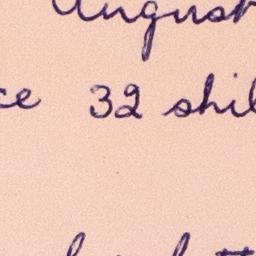 August
ce 32 shil